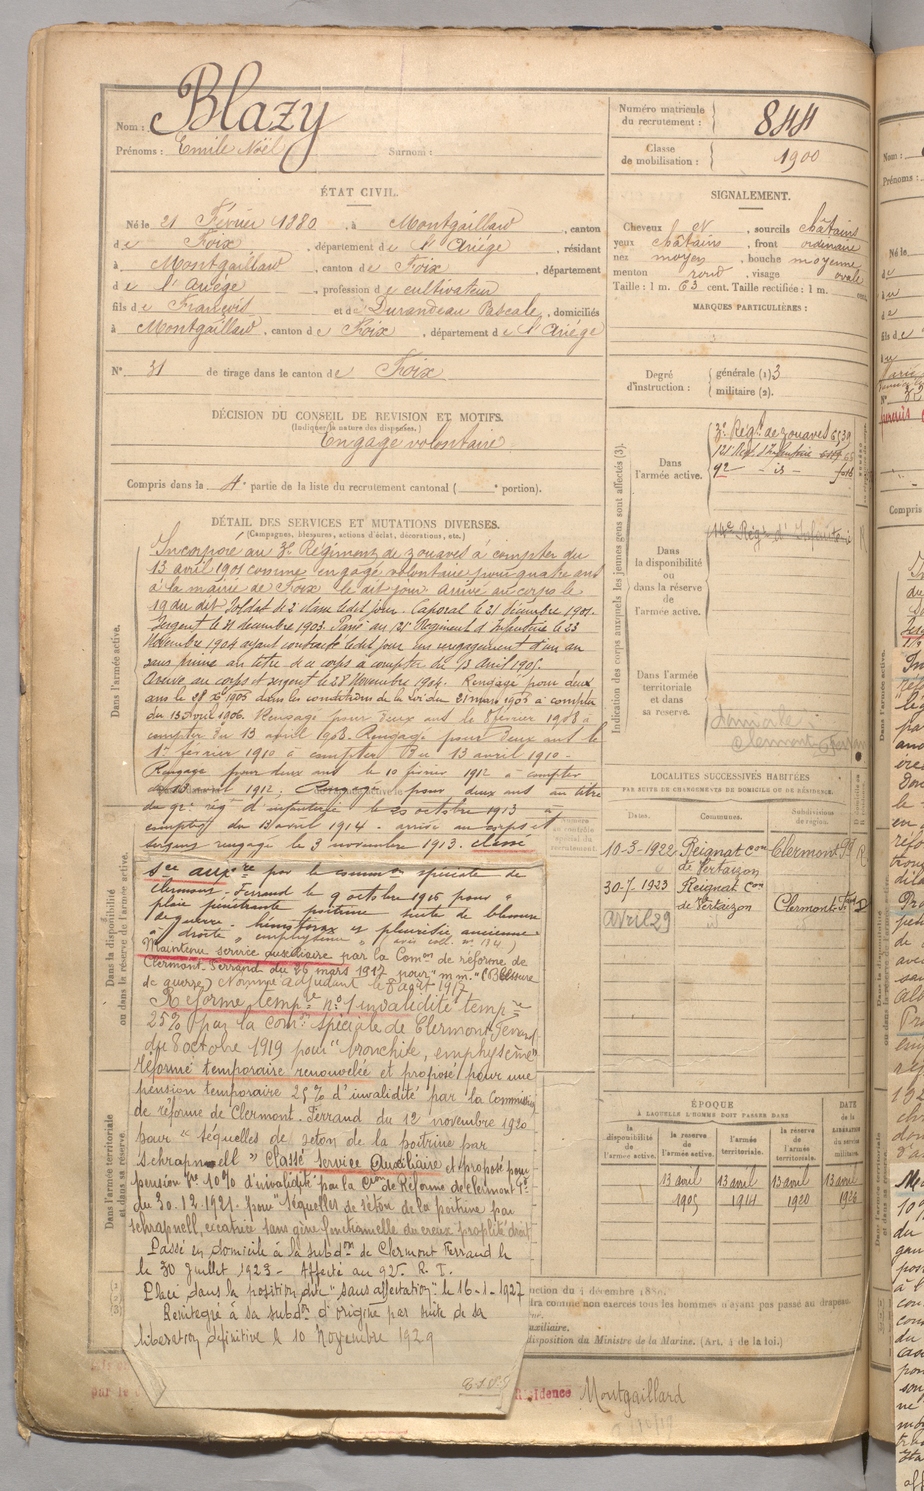 Nom : Blazy
Prénoms : Emile Noël Surnom :
Numéro matricule du recrutement : 844
Classe de mobilisation : 1900
ÉTAT CIVIL.
Né le 21 Février 1880, à Montgaillard, canton
de Foix, département de l'Ariège, résidant
à Montgaillard, canton de Foix, département
de l'Ariège, profession de cultivateur
fils de François et de Durandeau Pascale, domiciliés
à Montgaillard, canton de Foix, département de l'Ariège
N° 31 de tirage dans le canton de Foix
DÉCISION DU CONSEIL DE REVISION ET MOTIFS.
(Indiquer la nature des dispenses.)
Engagé volontaire
Compris dans la 4e partie de la liste du recrutement cantonal ( e portion).
DÉTAIL DES SERVICES ET MUTATIONS DIVERSES.
(Campagnes, blessures, actions d'éclat, décorations, etc.)
Dans l'armée active.
Incorporé au 3e Régiment de zouaves à compter du
13 avril 1901 comme engagé volontaire pour quatre ans
à la mairie de Foix le dit jour. Arrivé au corps le
19 du dit. Soldat de 2 classe ledit jour. Caporal le 21 décembre 1901.
Sergent le 21 décembre 1903. Passé au 121e Régiment d'Infanterie le 23
Novembre 1904 ayant contracté ledit jour un rengagement d'un an
sans prime au titre de ce corps à compter du 13 Avril 1905.
Arrivé au corps et sergent le 28 Novembre 1904. Rengagé pour deux
ans le 28 Xbre 1905 dans les conditions de la Loi du 21 mars 1905 à compter
du 13 Avril 1906. Rengagé pour deux ans le 8 février 1908 à
compter du 13 avril 1908. Rengagé pour deux ans le
1er février 1910 à compter du 13 avril 1910.
Rengagé pour deux ans le 10 février 1912 à compter
du 13 avril 1912; Rengagé pour deux ans au titre
du 92e rég t d'infanterie le 20 octobre 1913 à
compter du 13 avril 1914 - arrivé au corps et
sergent rengagé le 3 novembre 1913. classé
Dans la disponibilité ou dans la réserve de l'armée active.
sce auxre par la common spéciale de
Clermont-Ferrand le 9 octobre 1916 pour "
plaie pénétrante poitrine suite de blessure
de guerre. hémothorax et pleurésie ancienne
à droite
Maintenu service auxiliaire par la Comon de réforme de
Clermont-Ferrand du 26 mars 1917 pour "m.m." (Blessure
de guerre) Nommé adjudant le 8 août 1917
Réformé tempre n° 1 invalidité tempre
25% par la Comon spéciale de Clermont-Ferrand
du 8 octobre 1919 pour "bronchite, emphysème"
Réforme temporaire renouvelée et proposé pour une
pension temporaire 25% d'invalidité par la Commission
de réforme de Clermont-Ferrand du 12 novembre 1920
Dans l'armée territoriale et dans sa réserve
pour "séquelles de séton de la poitrine par
schrapnell" Classé service Auxiliaire et proposé pour
pension 10% d'invalidité par la Con de Réforme de Clermont Fd
du 30.12.1921. pour "séquelles de séton de la poitrine par
schrapnell, cicatrice sans gêne fonctionnelle du creux poplité droit
Passé en domicile à la subdon de Clermont Ferrand le
le 30 Juillet 1923 - Affecté au 92e R. I.
Placé dans la position dite "sans affectation" le 16-1-1927
Réintégré à sa subdon d'origine par suite de sa
libération définitive le 10 Novembre 1929
SIGNALEMENT.
Cheveux N, sourcils châtains
yeux châtains, front ordinaire
nez moyen, bouche moyenne
menton rond, visage ovale
Taille : 1 m. 63 cent. Taille rectifiée : 1 m. cent.
MARQUES PARTICULIÈRES :
Degré d'instruction : générale (1) 3
militaire (2).
Indication des corps auxquels les jeunes gens sont affectés (3).
Dans l'armée active.
3e Régt de zouaves 6539
121e Régt d'Infanterie
92 - is -
Dans la disponibilité ou dans la réserve de l'armée active.
Dans l'armée territoriale et dans sa réserve.
domicile :
Clermont-Ferrand
LOCALITÉS SUCCESSIVES HABITÉES
PAR SUITE DE CHANGEMENTS DE DOMICILE OU DE RÉSIDENCE.
Dates. Communes. Subdivisions de région.
10-3-1922 Reignat Con de Vertaizon Clermont Fd R
30-7-1923 Reignat Con de Vertaizon Clermont Fand D
Avril 29
ÉPOQUE
À LAQUELLE L'HOMME DOIT PASSER DANS
DATE de la LIBÉRATION du service militaire.
la disponibilité de l'armée active. la réserve de l'armée active. l'armée territoriale. la réserve de l'armée territoriale.
13 avril 1905 13 avril 1914 13 avril 1920 13 avril 1926
uction du 4 décembre 1889.
dra comme non exercés tous les hommes n'ayant pas passé au drapeau.
uxiliaire.
disposition du Ministre de la Marine. (Art. 4 de la loi.)
par le
Résidence Montgaillard